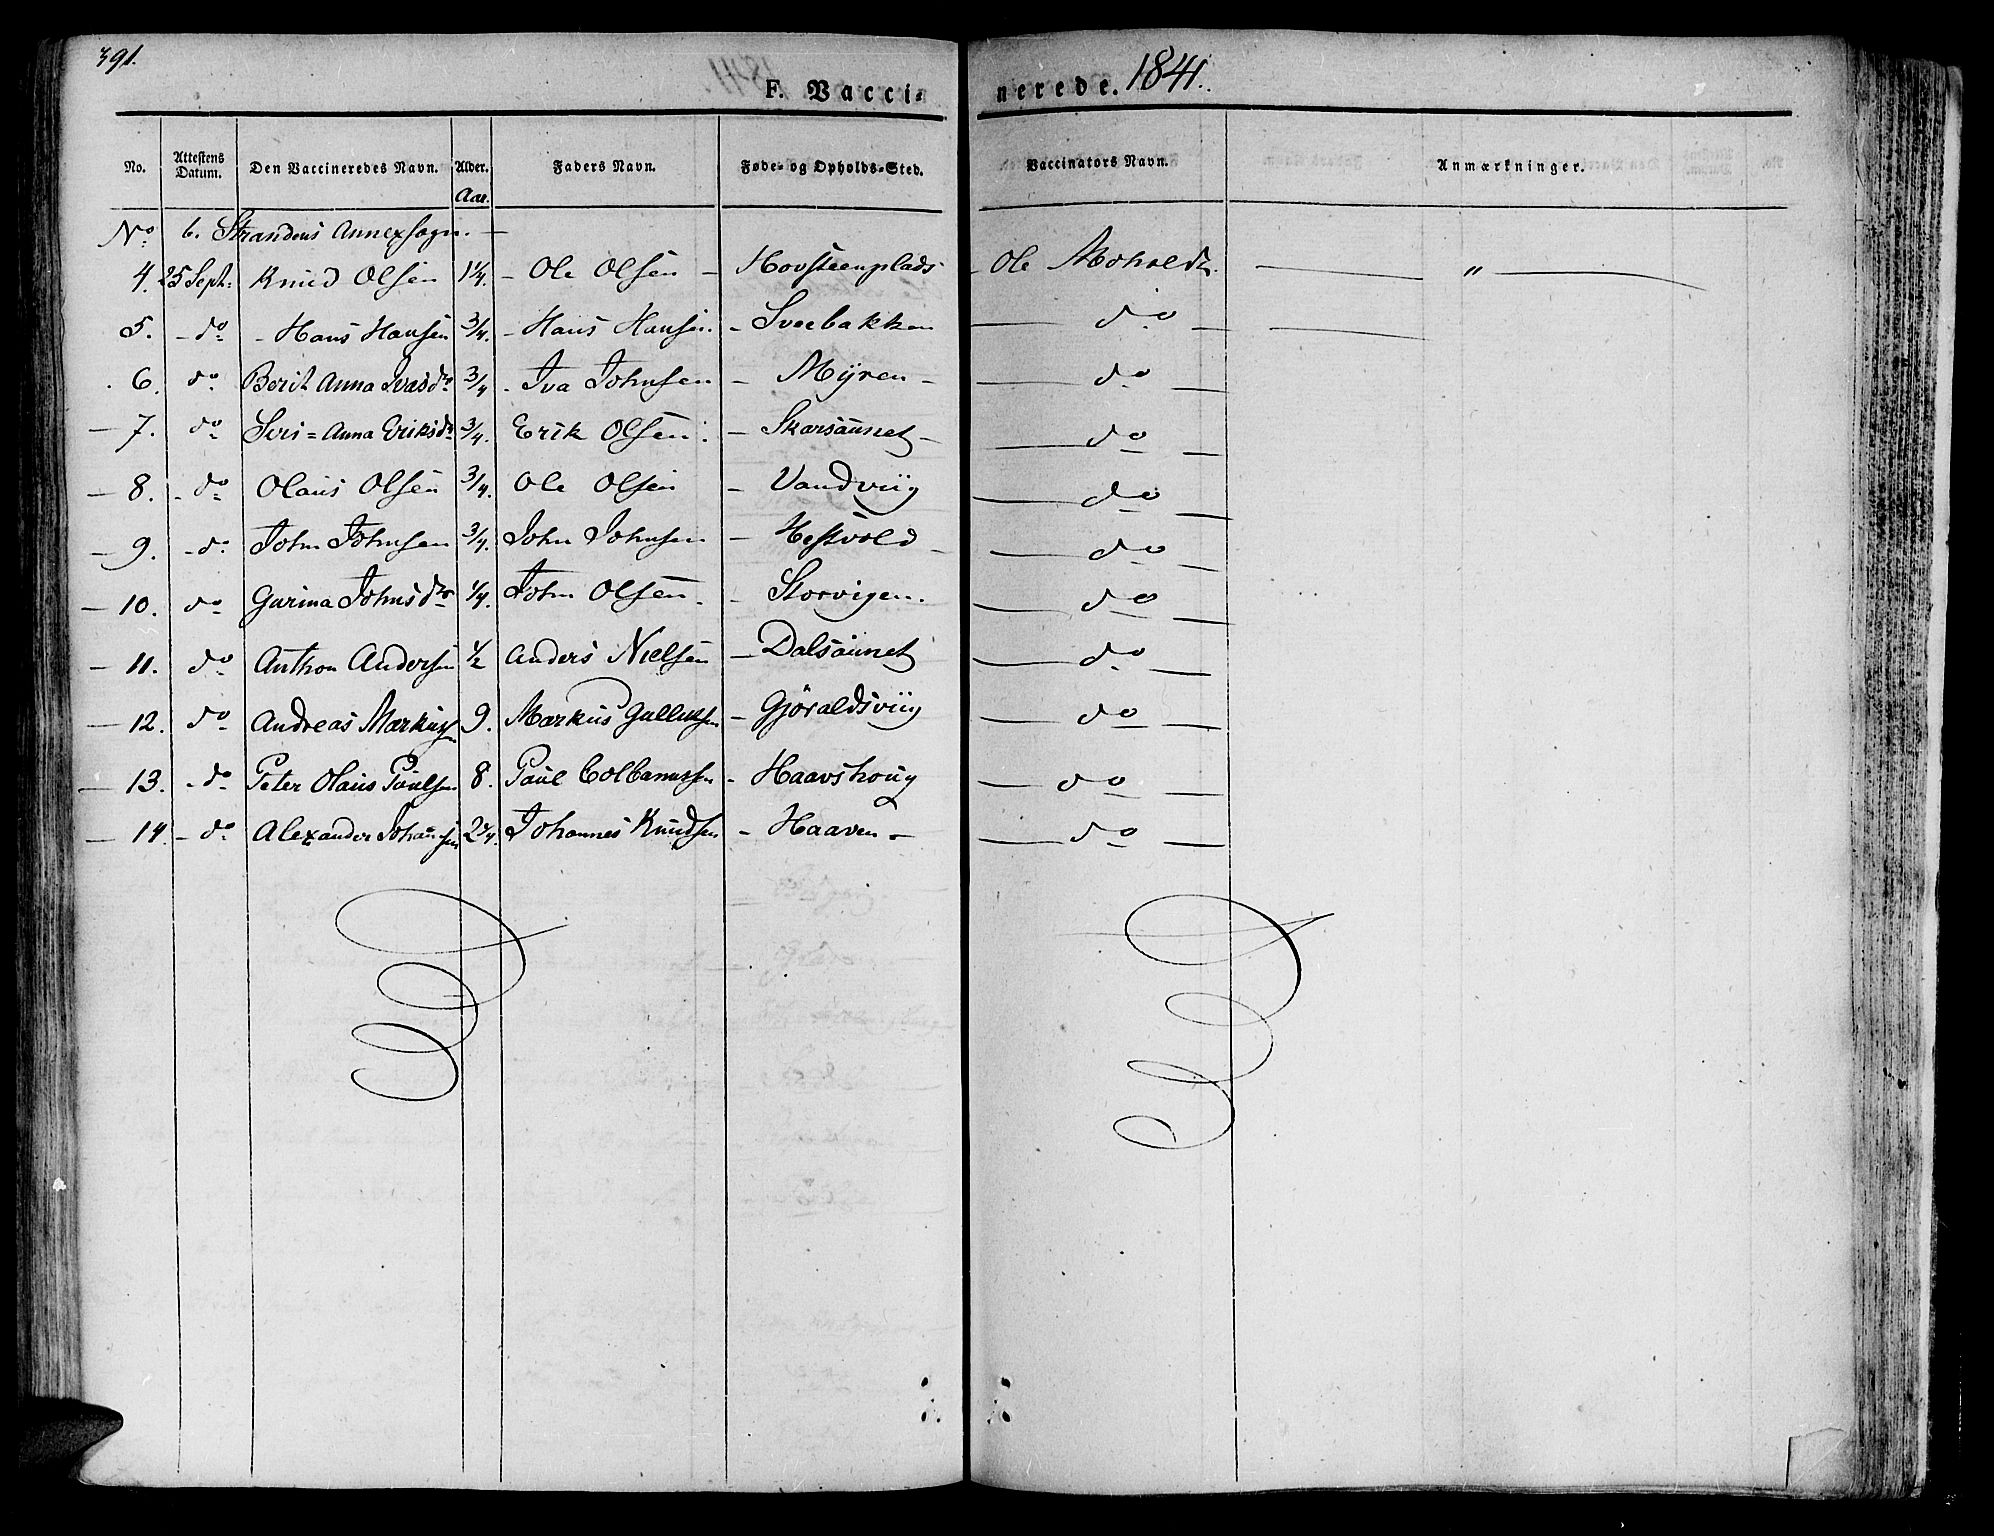 391.
F. Vaccinerede. 1841.
No. Attestens Datum. Den Vaccineredes Navn. Alder. Faders Navn. Føde- og Opholds-Sted. Vaccinators Navn. Anmærkninger.
Aar.
No. 6. Strandens Annexsogn. —
4. 25 Sept: Knud Olsen 1 1/4. – Ole Olsen – Hovsteenplads – Ole Moholdt. — " —
5. – do – Hans Hansen 3/4. – Hans Hansen. – Sveebakken — do —
6. do Berit Anna Ivasdr 3/4 – Iva Johnsen – Myren – — do —
– 7. do Seri = Anna Eriksdr 3/4. Erik Olsen. – Skarsaunet – — do —
– 8. – do Olaus Olsen 3/4. Ole Olsen – Vandviig — do —
– 9. – do John Johnsen 3/4. John Johnsen – Hestvold – — do —
– 10. do Gurina Johnsdr 1/4. John Olsen. – Storvigen. — do —
– 11. do Anthon Andersen 1/2 Anders Nielsen – Dalsaunet — do —
– 12. do Andreas Markussen 9. Markus Gullussen – Gjöraldsviig — do —
– 13. – do Peter Olaus Paulsen 8. Paul Colbanussen – Haavshoug — do —
– 14. – do Alexander Johansen 2 3/4. Johannes Knudsen – Haaven – — do —